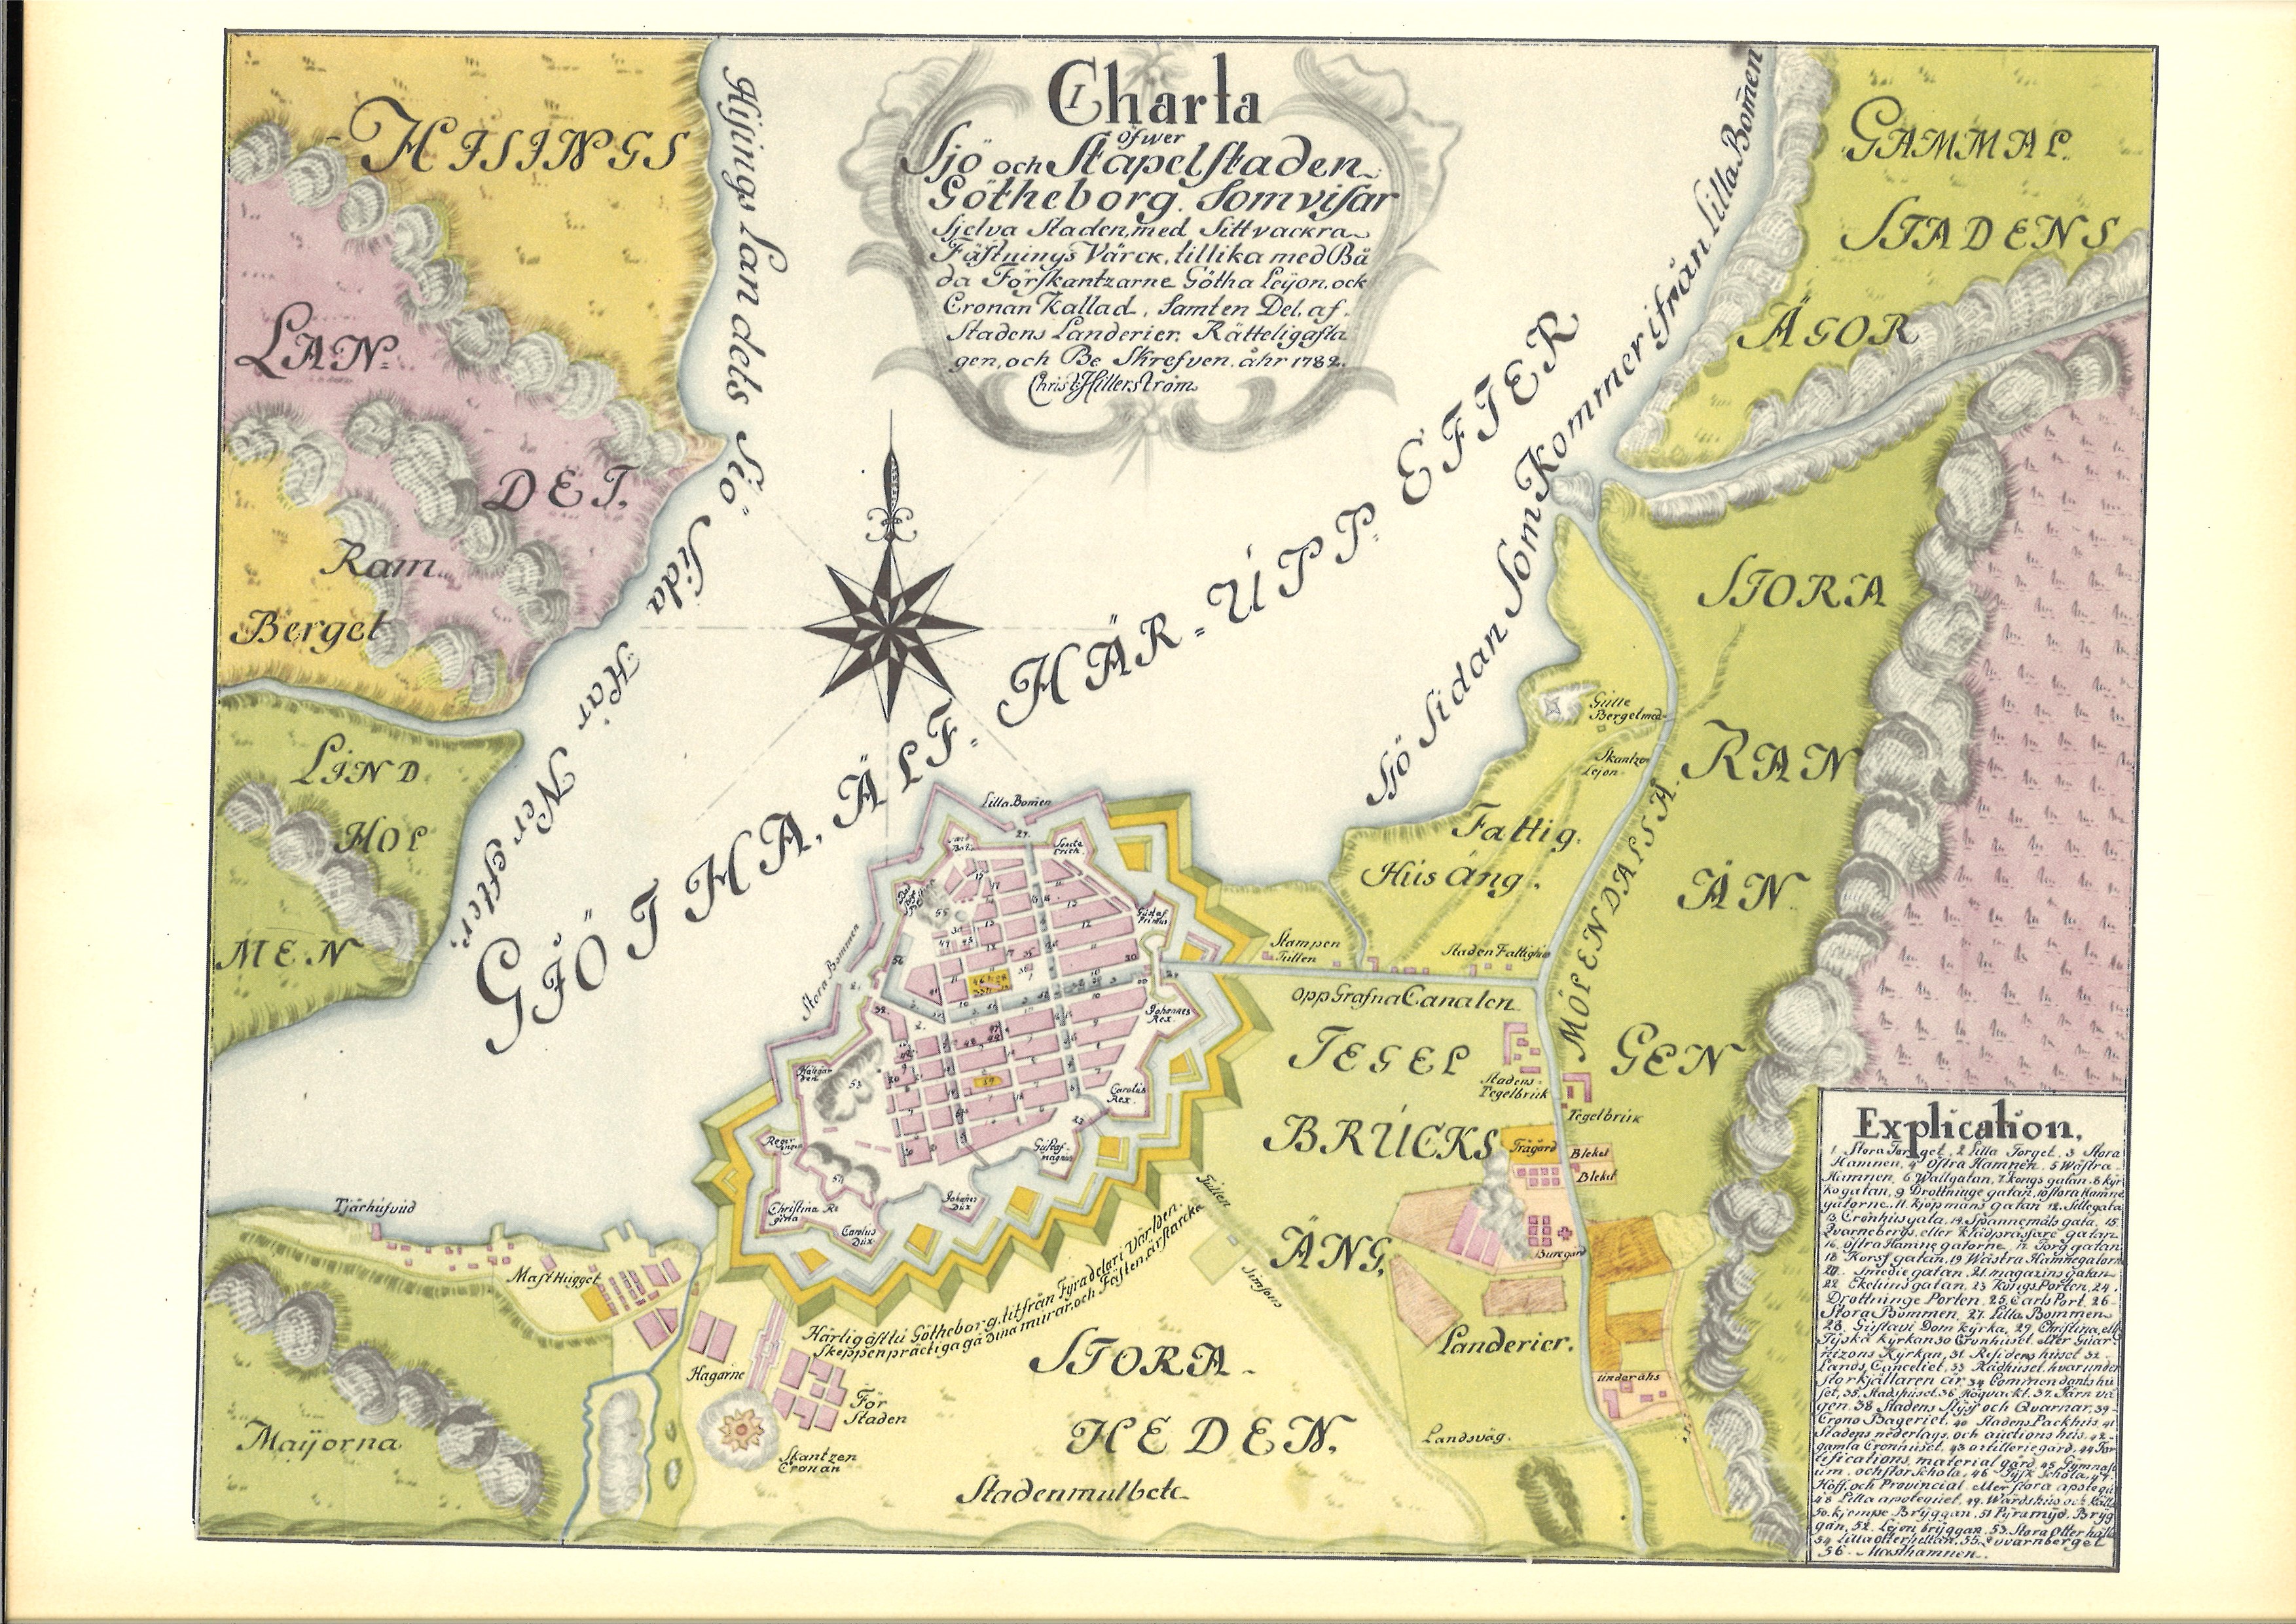 I
Charta
öfwer
Sjö och Stapelstaden
Götheborg. Somvisar
Sjelva Staden, med Sitt vackra
Fästnings Värck, tillika med Bå
da Förskantzarne Götha Leijon, ock
Cronan Kallad, Samt en Del, af
Stadens Landerier. Rätteligafta
gen, och Be Skrefven. åhr 1782.
Christ. Hillerström
HISINGS
LAN
DET.
Ram
Berget
LIND
HOL
MEN
Hisings Landets Siö Sida
Här Ner efter.
GJÖTHA, ÄLF, HÄR-UPP EFTER
Sjö Sidan Som Kommer ifrån Lilla Bomen
GAMMAL
STADENS
ÄGOR
STORA
RAN
ÄN
GEN
Gulle
Berget med
Skantze
Lejon
Fattig
Hus äng.
MÖLENDALS Å
Stampen
Tullen
Staden Fattighus
Opp Grafna Canalen
TEGEL
BRUCKS
ÄNG.
Stadens
Tegelbruk
Tegelbruk
Trägård
Bleket
Bleket
Buregård
Landerier.
underåhs
Landsväg.
Lilla Bomen
Stora Bommen
Gustaf
Primus
Johannes
Rex.
Carolus
Rex.
Gustaf
magnus
Johanes
Dux
Carolus
Dux
Christina Re
gina
Tullen
Simsons
Härligästu Götheborg, titfrån Fyra delar i Världen.
Skeppen präctiga gå dina murar, och Fästen, är starcka
Tjärhufvud
Mast Hugget
Hagarne
För
Staden
Skantzen
Cronan
Maijorna
STORA
HEDEN.
Staden mulbete
Explication.
1 Stora Torget, 2 Lilla Torget, 3 Stora
Hamnen, 4 Östra Hamnen, 5 Wästra
Hamnen, 6 Wallgatan, 7 kongs gatan, 8 kyr
kogatan, 9 Drottninge gatan, 10 stora Hamne
gatorne, 11. kjöpmans gatan 12. Sillegata
13. Cronhusgata, 14. Spannemåls gata, 15.
Qvarnebergs, eller Klädpressare gatan
16. Östra Hamne gatorne, 17 Torg gatan
18 Korsf gatan, 19 Wästra Hamnegatorn
20. Smedie gatan, 21. magazins gatan
22 Ekelunsgatan, 23 Kongs Porten, 24.
Drottninge Porten, 25, Carls Port, 26
Stora Bommen, 27. Lilla Bommen
28. Gustavi Dom kyrka, 29. Christina, ell
Tyska kyrkan 30 Cronhuset, eller Guar
nizons Kyrkan, 31 Residens huset 32
Lands, Canceliet, 33 Rådhuset, hvarunder
Storkjällaren är, 34 Commendants hu
set, 35, Stadshuset, 36 Högvackt, 37. Järn vå
gen, 38 Stadens Slyss och Qvarnar, 39
Crono Bageriet, 40 Stadens Packhus, 41
Stadens nederlags, och auctions hus, 42
gamla Cronhuset, 43 artillerie gård, 44 For
tifications, material gård, 45 Gymnasi
um, och stor Schola, 46 Tysk Schola, 47
Hoff, och Provincial eller stora apoteque
48 Lilla apotequet, 49. Wärdshus och Käll
50. kjempe Bryggan, 51 Pyramyd, Bryg
gan, 52. Lejon bryggan, 53. Stora Otter häll
54 Lilla Otterhellan, 55. Qvarnberget
56. Masthamnen.